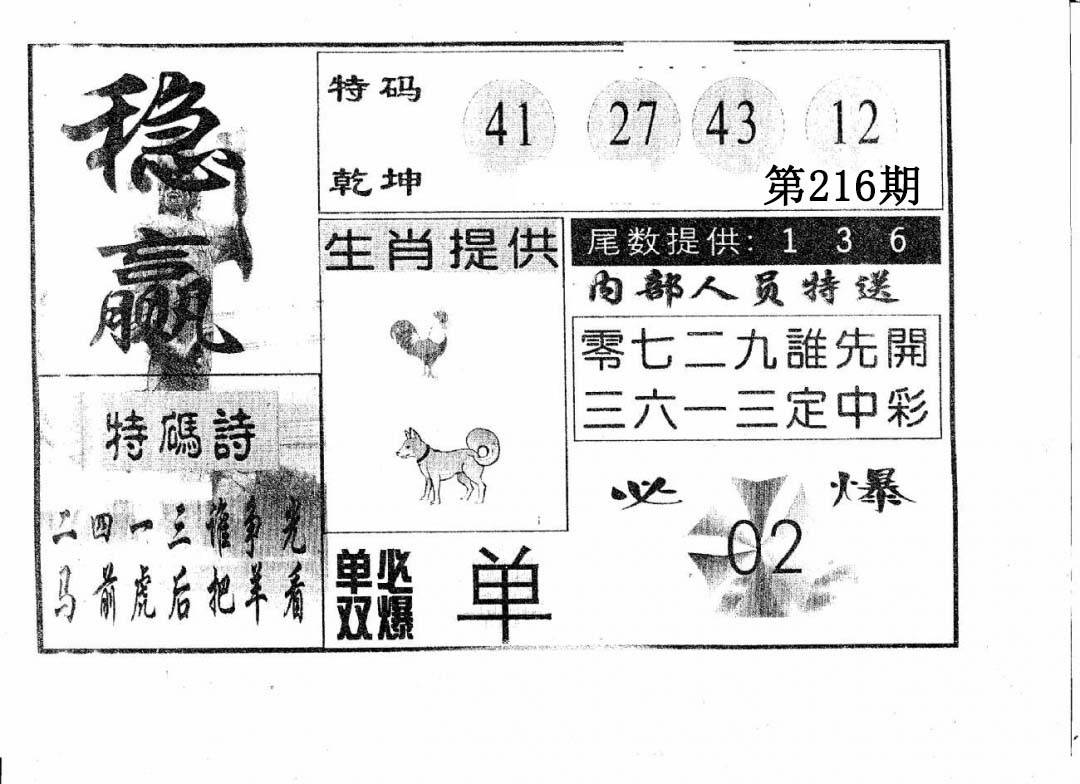 稳赢
特码
乾坤
41 27 43 12
第216期
生肖提供
尾数提供：1 3 6
内部人员特送
零七二九誰先開
三六一三定中彩
特碼詩
二四一三谁争光
马前虎后把羊看
必爆
02
单双
必爆
单